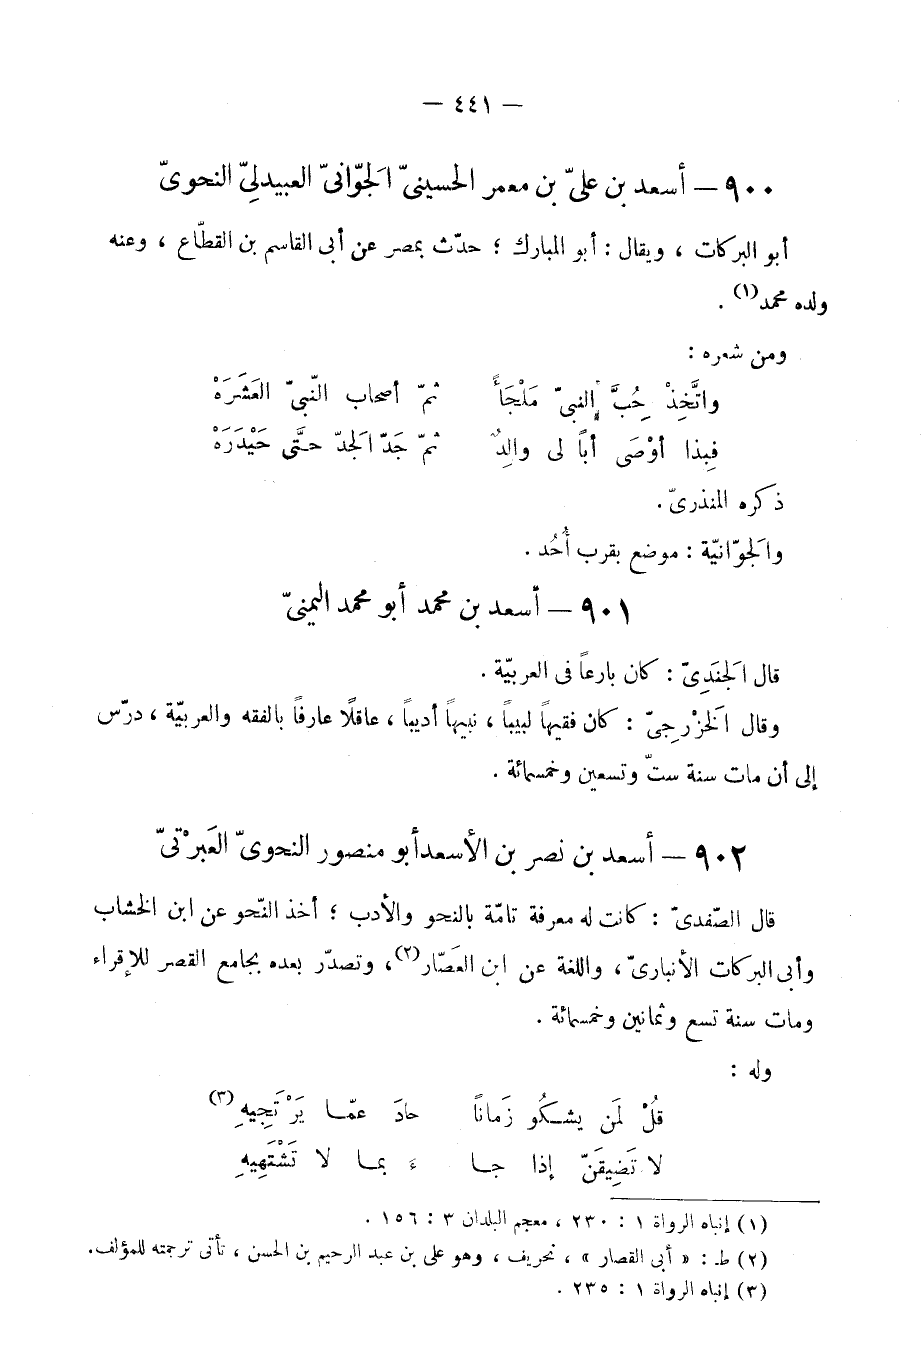 — ٤٤١ —
٩٠٠ — أسعد بن علىّ بن معمر الحسينىّ الجوّانىّ العبيدلِىّ النحوىّ
أبو البركات ، ويقال : أبو المبارك ؛ حدّث بمصر عن أبى القاسم بن القطّاع ، وعنه
ولده محمد(١) .
ومن شعره :
واتَّخِذْ حُبَّ النبىّ مَلْجَأً ثمّ أصحاب النّبىّ العَشَرَهْ
فبِذا أوْصَى أباً لى والِدٌ ثمّ جَدّ الجدّ حتَّى حَيْدَرَهْ
ذكره المنذرىّ .
والجوّانيّة : موضع بقرب أُحُد .
٩٠١ — أسعد بن محمد أبو محمد اليمنىّ
قال الجَنَدِىّ : كان بارعاً فى العربيّة .
وقال الخَزْرجىّ : كان فقيهاً لبيباً ، نبيهاً أديباً ، عاقلًا عارفًا بالفقه والعربيّة ، درّس
إلى أن مات سنة ستّ وتسعين وخمسمائة .
٩٠٢ — أسعد بن نصر بن الأسعد أبو منصور النحوىّ العَبَرْتىّ
قال الصّفدىّ : كانت له معرفة تامّة بالنحو والأدب ؛ أخذ النّحو عن ابن الخشاب
وأبى البركات الأنبارىّ ، واللغة عن ابن العَصّار(٢)، وتصدّر بعده بجامع القصر للإقراء
ومات سنة تسع وثمانين وخمسمائة .
وله :
قُلْ لمَن يشكُو زَمانًا حادَ عمّا يَرْتَجِيهِ(٣)
لا تَضِيقَنّ إذا جا ءَ بما لا تَشْتَهِيهِ
(١) إنباه الرواة ١ : ٢٣٠ ، معجم البلدان ٣ : ١٥٦ .
(٢) ط : « أبى القصار » ، تحريف ، وهو على بن عبد الرحيم بن الحسن ، تأتى ترجمته للمؤلف.
(٣) إنباه الرواة ١ : ٢٣٥ .